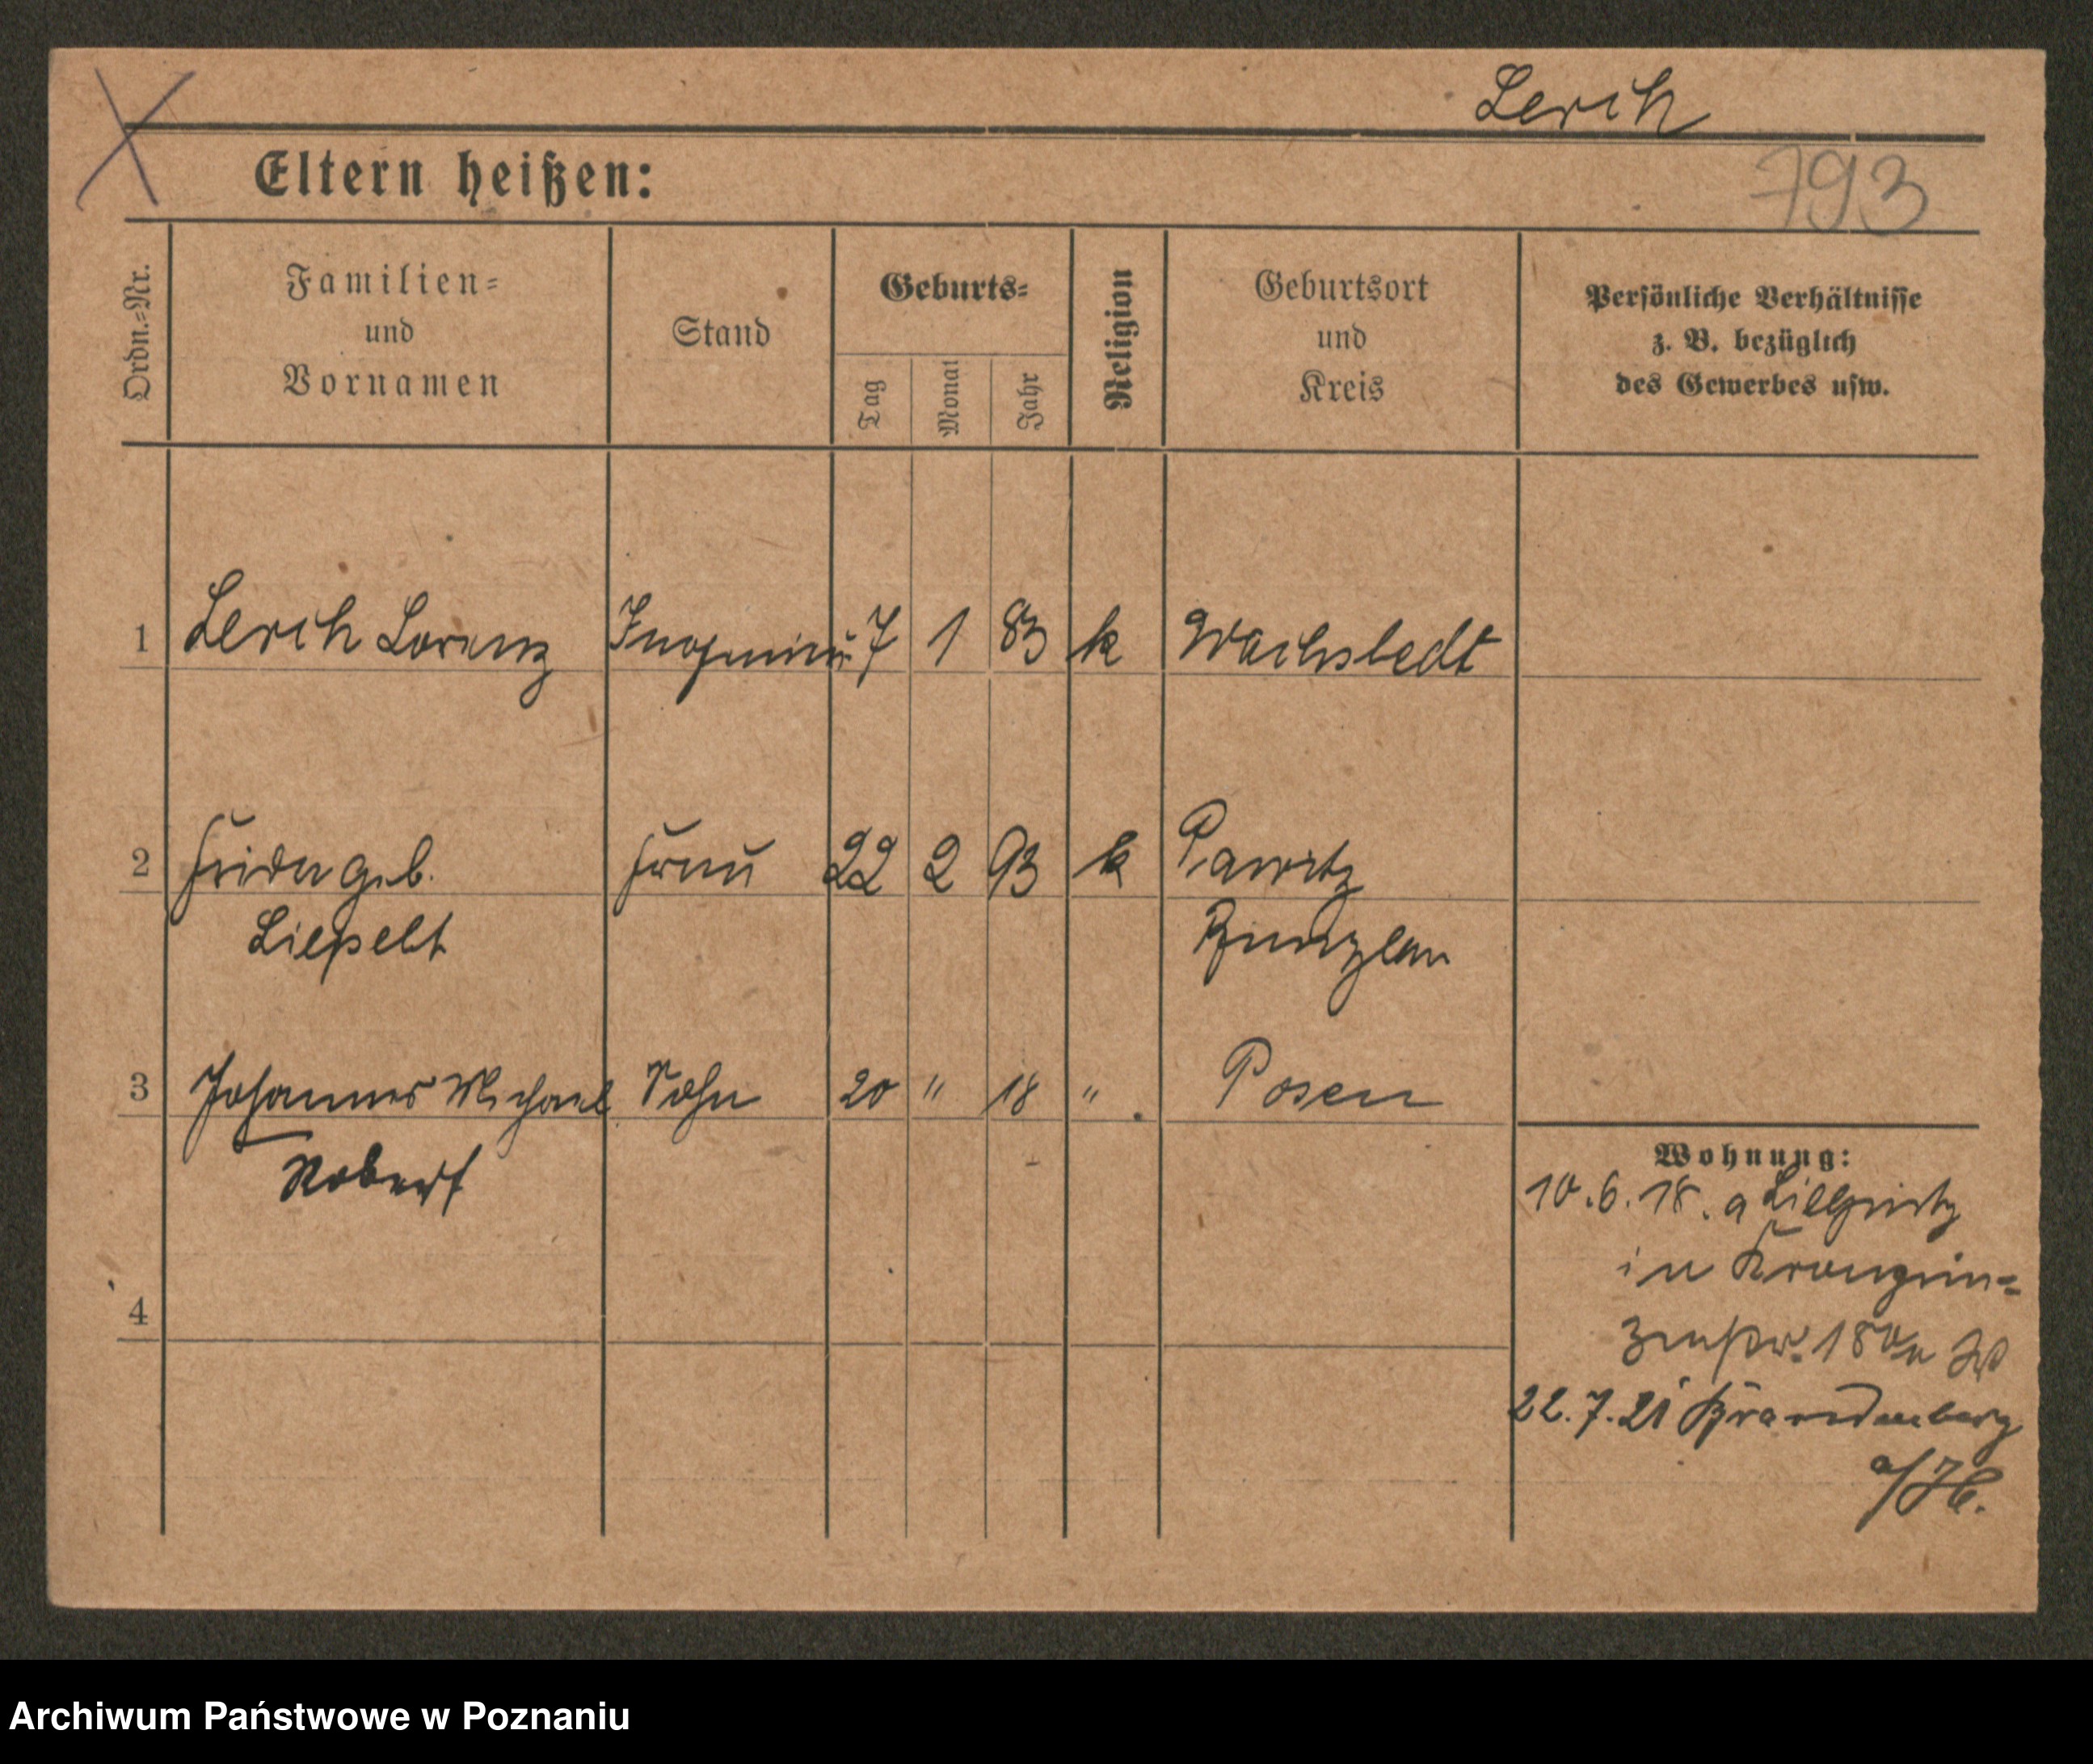 Lerch
793
Eltern heißen:
Ordn.-Nr.
Familien-
und
Vornamen
Stand
Geburts-
Tag
Monat
Jahr
Religion
Geburtsort
und
Kreis
Persönliche Verhältnisse
z. B. bezüglich
des Gewerbes usw.
1 Lerch Lorenz Ingenieur 7 1 83 k Wachstedt
2 Frida geb. Frau 22 2 93 k
Liepelt Bunzlau
3 Johannes Michael Sohn 20 " 18 " Posen
Robert
Wohnung:
10.6.18. a
in Kronprin-
4
zenstr. 18
22.7.21 Brandenburg
a/H.
Archiwum Państwowe w Poznaniu